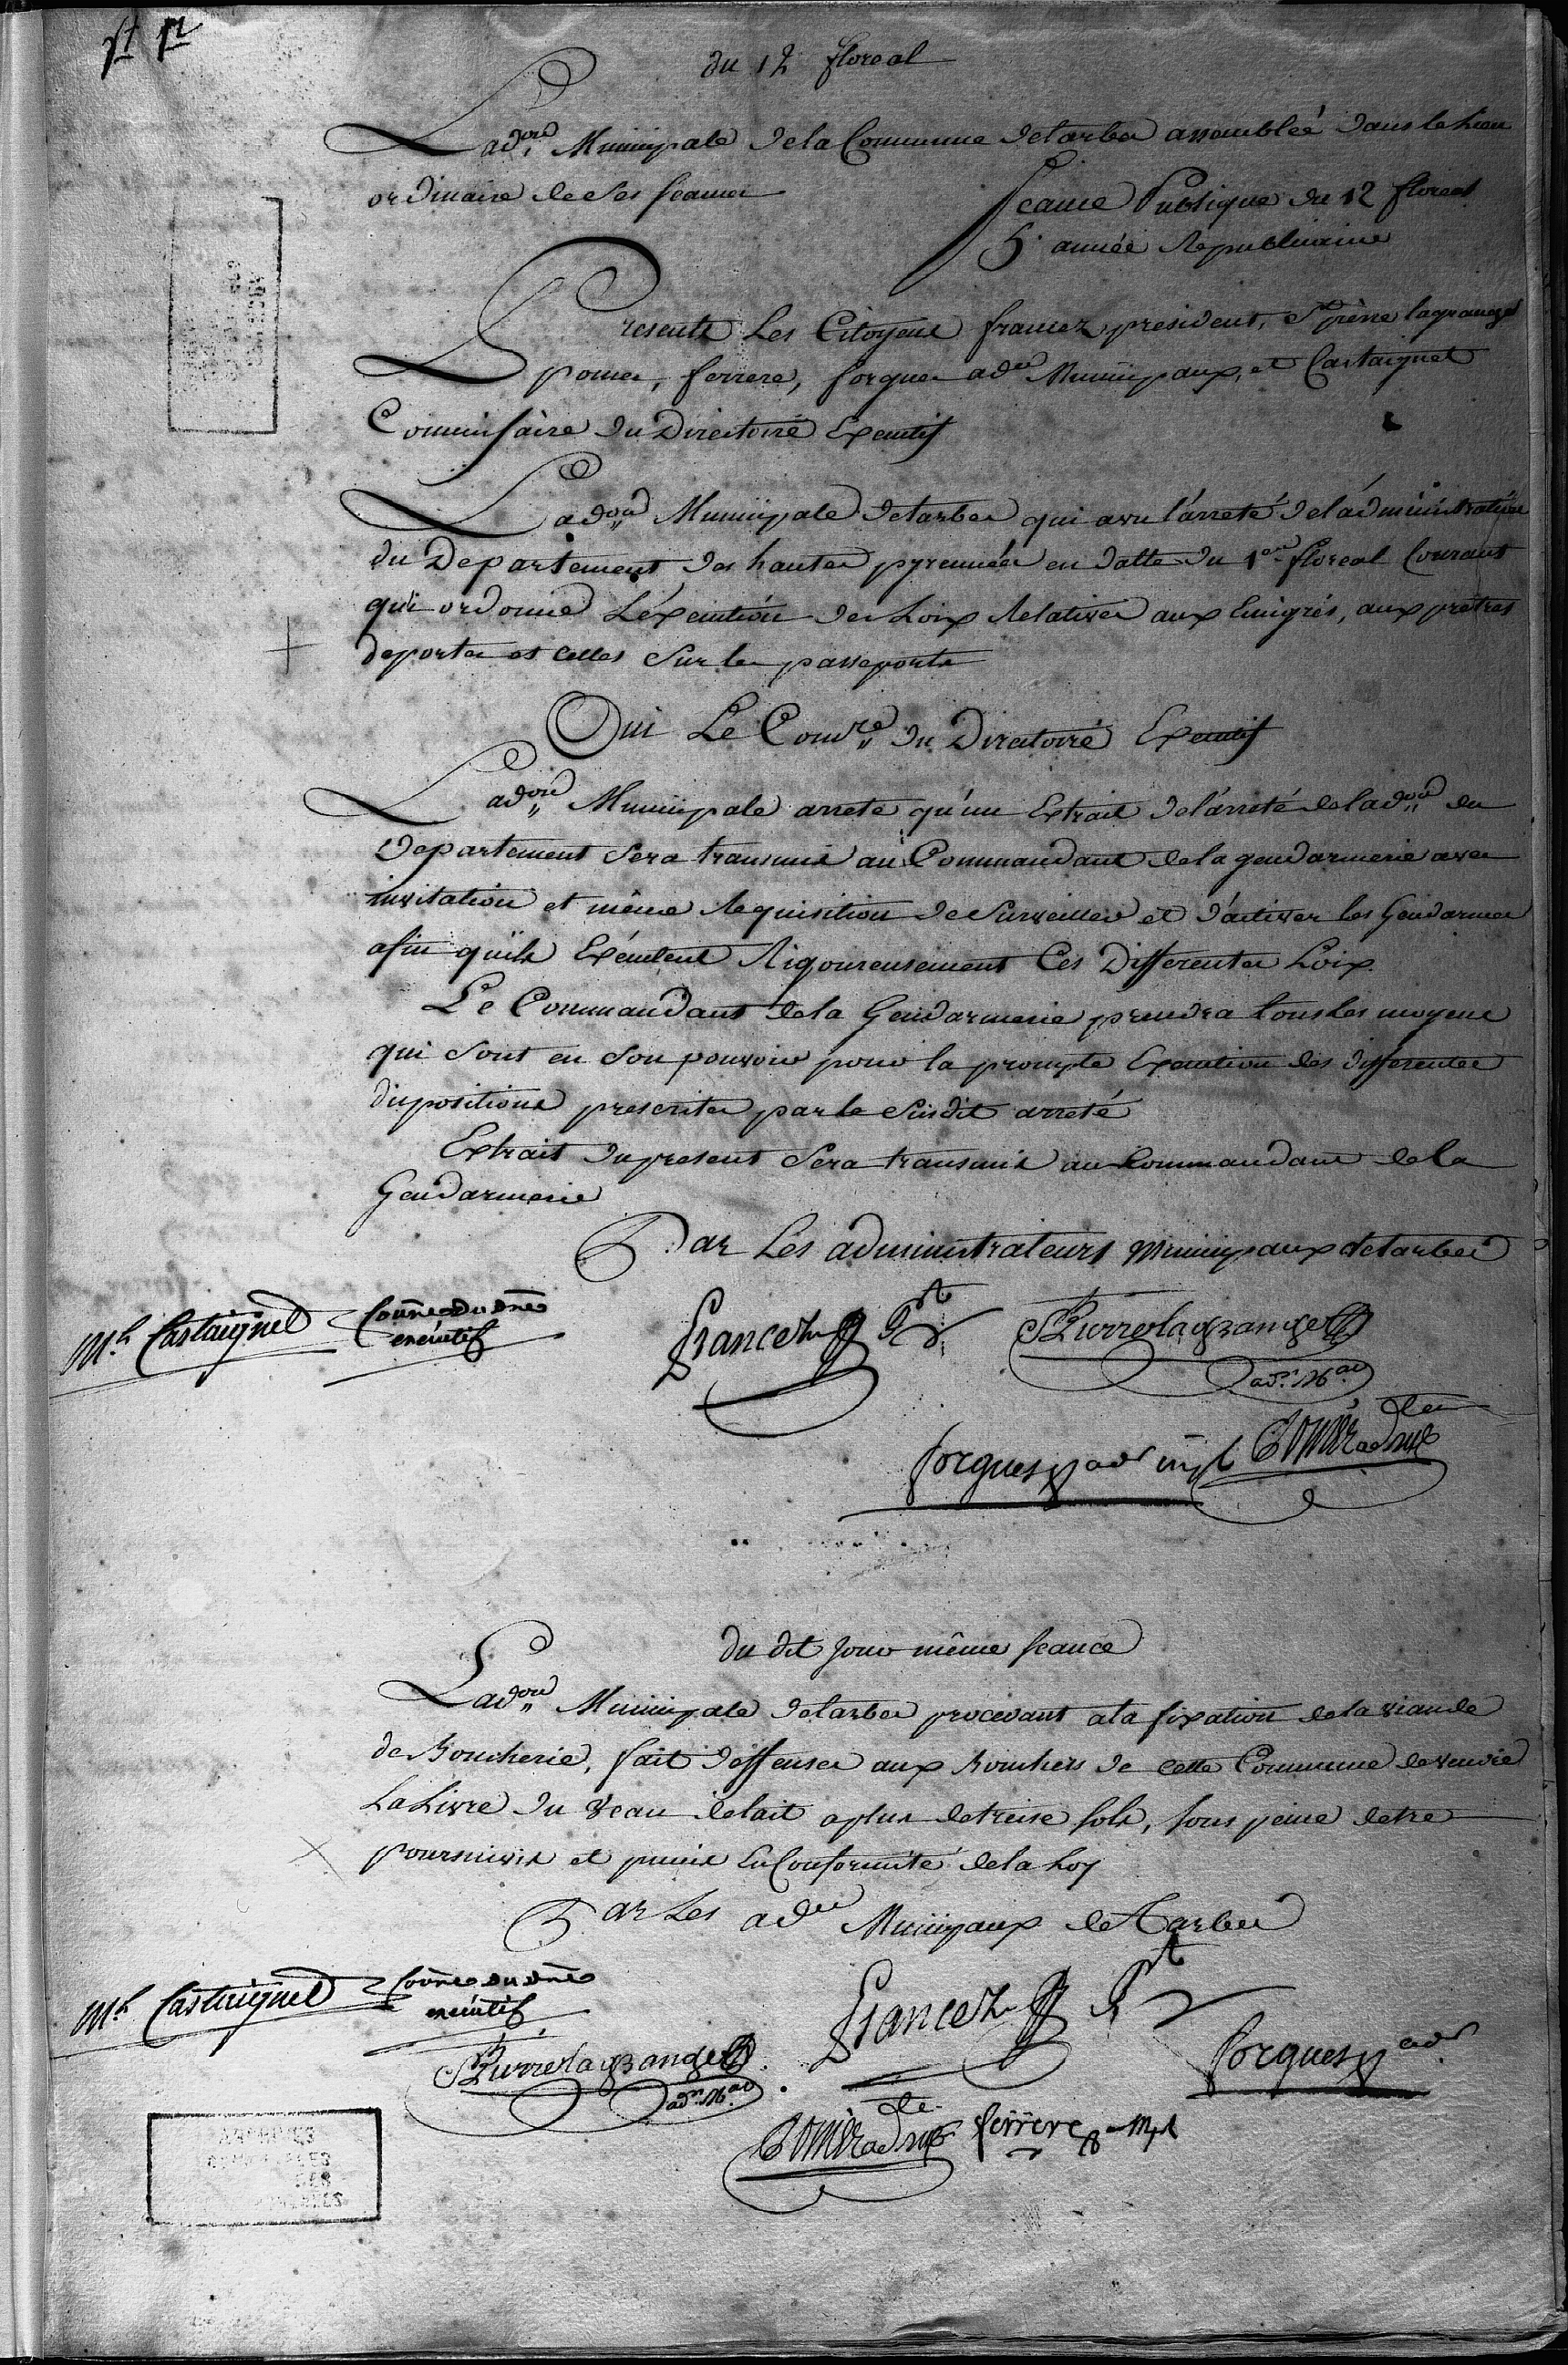 du 12 floreal
Ladon Municipale de la Commune de tarbes assemblée dans le lieu
ordinaire de ses seances
Seance Publique du 12 floreal
5e année Republicaine
Presents Les Citoyens francez president, lagrange
pomes, ferrere, forgues adrs Municipaux, et Castaignet
Commissaire du Directoire Executif
Ladon Municipale de tarbes qui a vu l'arreté de l'administration
du Departement des hautes pyrennées en datte du 1er floreal Courant
qui ordonne L'éxecution des Loix Relatives aux Emigrés, aux pretres
deportes et celles Sur les passeports
Oui Le Comre du Directoire Executif
Ladon Municipale arrete qu'un Extrait de l'arreté de ladon du
Departement Sera transmis au Commandant de la gendarmerie avec
invitation et même Requisition de Surveiller et d'activer les Gendarmes
afin qu'ils Exécutent Rigoureusement Ces Differentes Loix
Le Commandant de la Gendarmerie prendra tous les moyens
qui Sont en Son pouvoir pour la prompte Execution des differentes
dispositions prescrites par le Susdit arreté
Extrait du present Sera transmis au Commandant de la
Gendarmerie
Par Les administrateurs Municipaux de tarbes
Mh Castaignet
executif
francez Pt
lagrange
adr Mal
forgues adr mpl
du dit jour même seance
Ladon Municipale de tarbes procedant a la fixation de la viande
de Boucherie, fait deffenses aux Bouchers de cette Commune de vendre
La Livre du Veau de lait a plus de treise sols, sous peine detre
poursuivis et punis En Conformité de la Loy
Par Les adrs Municipaux de Tarbes
Mh Castaignet
executif
francez Pt
lagrange
adr Mal
forgues adr
ferrere
ARCHIVES